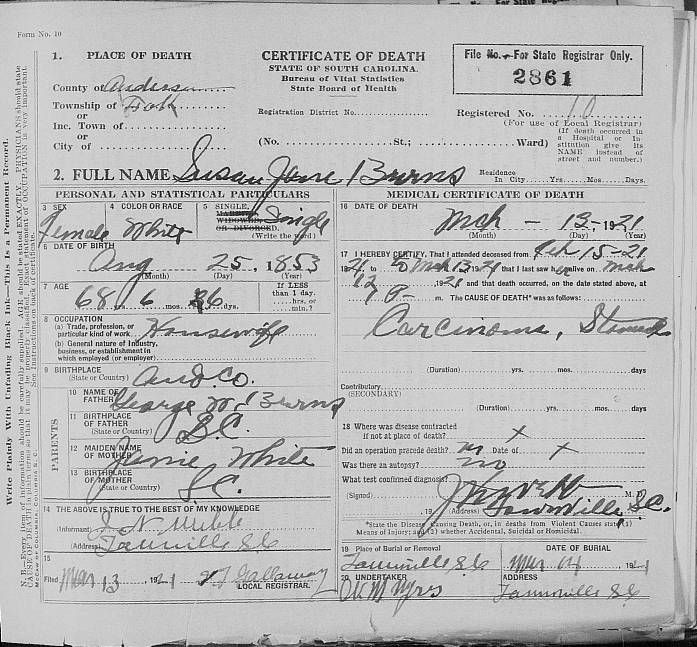 Form No. 10
1. PLACE OF DEATH
County of Anderson
Township of Fork
or
Inc. Town of
or
City of
CERTIFICATE OF DEATH
STATE OF SOUTH CAROLINA.
Bureau of Vital Statistics
State Board of Health
File No.—For State Registrar Only.
2861
Registration District No.
Registered No. 10
(For use of Local Registrar)
(No. St.; Ward)
(If death occurred in a Hospital or Institution give its NAME instead of street and number.)
2. FULL NAME Susan Jane Burns
Residence In City Yrs. Mos. Days.
PERSONAL AND STATISTICAL PARTICULARS
3 SEX
Female
4 COLOR OR RACE
White
5 SINGLE, MARRIED, WIDOWED, OR DIVORCED.
Single
(Write the word)
6 DATE OF BIRTH
Aug 25, 1853
(Month) (Day) (Year)
7 AGE
68 yrs. 6 mos. 26 dys.
If LESS than 1 day, hrs. or min.?
8 OCCUPATION
(a) Trade, profession, or particular kind of work Housewife
(b) General nature of Industry, business, or establishment in which employed (or employer)
9 BIRTHPLACE
(State or Country) And. Co.
PARENTS
10 NAME OF FATHER George W. Burns
11 BIRTHPLACE OF FATHER
(State or Country) S.C.
12 MAIDEN NAME OF MOTHER Jennie White
13 BIRTHPLACE OF MOTHER
(State or Country) S.C.
14 THE ABOVE IS TRUE TO THE BEST OF MY KNOWLEDGE
(Informant) J. N.
(Address) Townville S.C.
15
Filed Mar 13, 1921 Gallaway
LOCAL REGISTRAR.
MEDICAL CERTIFICATE OF DEATH
16 DATE OF DEATH
Mch — 13, 1921
(Month) (Day) (Year)
17 I HEREBY CERTIFY, That I attended deceased from Feb 15 - 21
1921, to Mch 13 - 21 that I last saw alive on Mch
12 1921 and that death occurred, on the date stated above, at
m. The CAUSE OF DEATH* was as follows:
Carcinoma, Stomach
(Duration) yrs. mos. days
Contributory
(SECONDARY)
(Duration) yrs. mos. days
18 Where was disease contracted
if not at place of death? x
Did an operation precede death? no Date of x
Was there an autopsy? no
What test confirmed diagnosis?
(Signed) M. D.
, 19 (Address) Townville, S.C.
*State the Disease Causing Death, or, in deaths from Violent Causes state (1) Means of Injury; and (2) whether Accidental, Suicidal or Homicidal.
19 Place of Burial or Removal
Townville S.C.
DATE OF BURIAL
Mar 14, 1921
20 UNDERTAKER
ADDRESS
Townville S.C.
Write Plainly With Unfading Black Ink—This Is a Permanent Record.
N. B.—Every item of Information should be carefully supplied. AGE should be stated EXACTLY. PHYSICIANS should state
CAUSE OF DEATH in plain terms so that it may be properly classified. Exact statement of OCCUPATION is very important.
See Instructions on back of certificate.